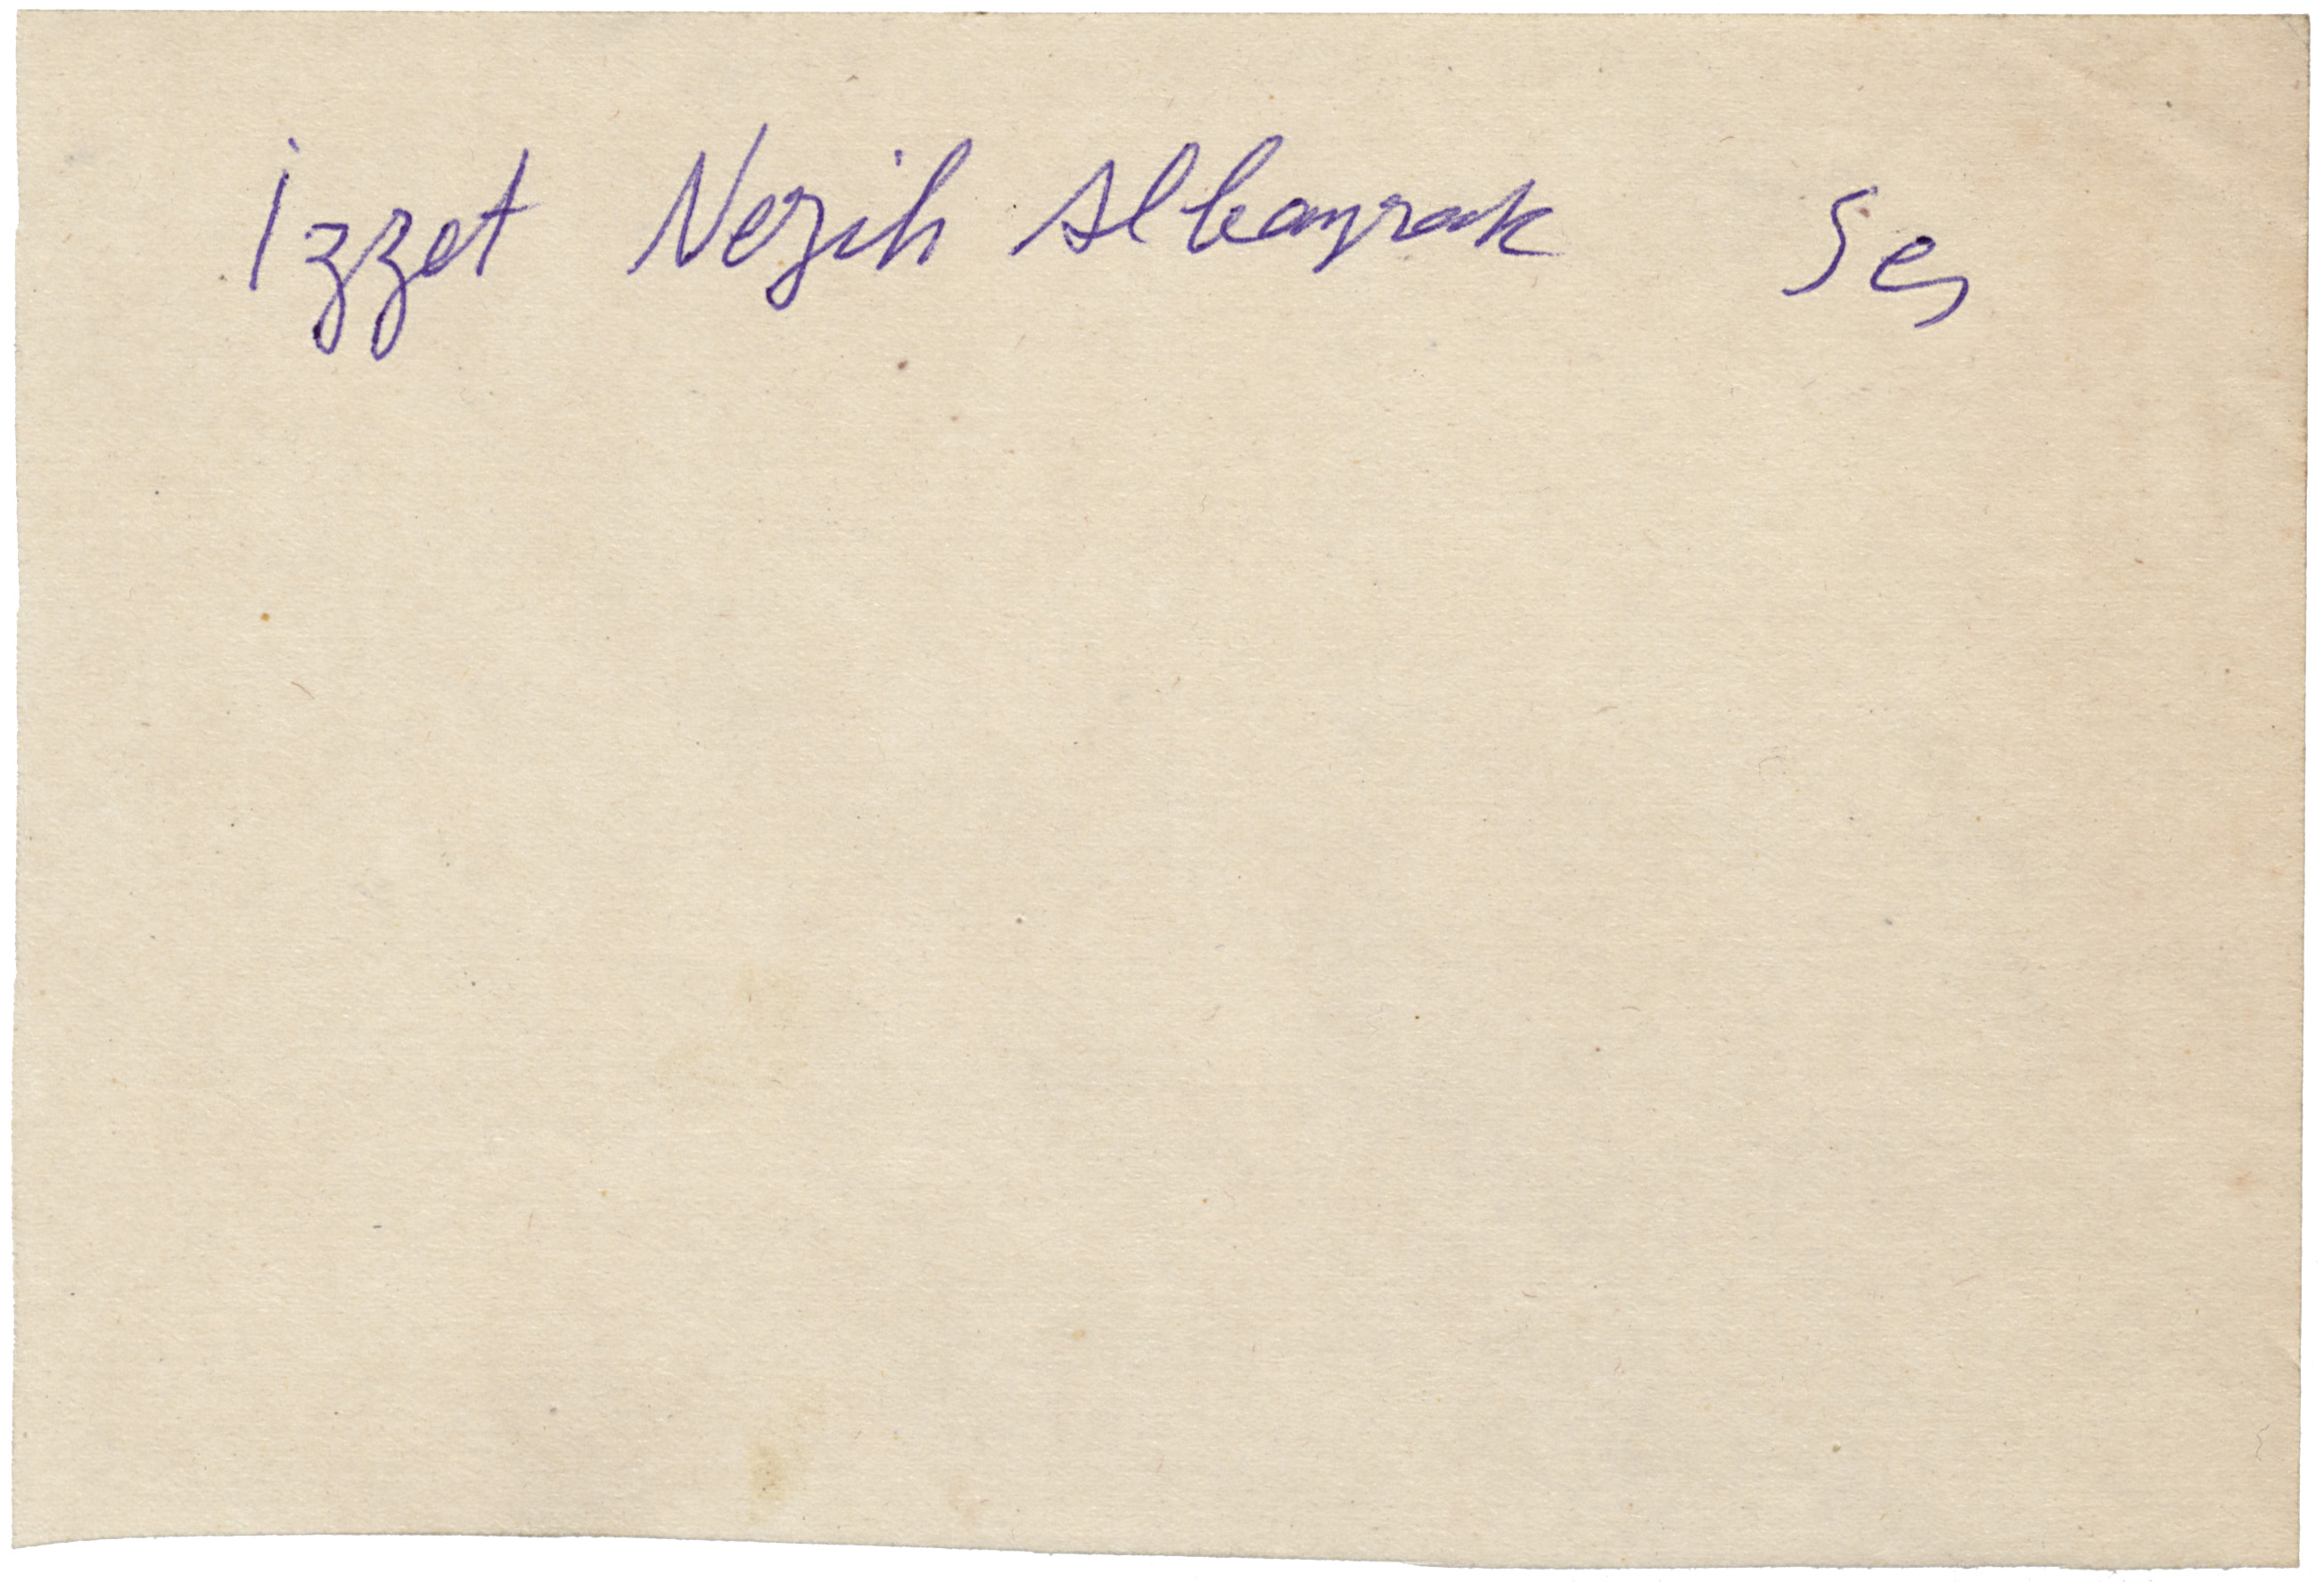 İzzet Nezih Albayrak Ses